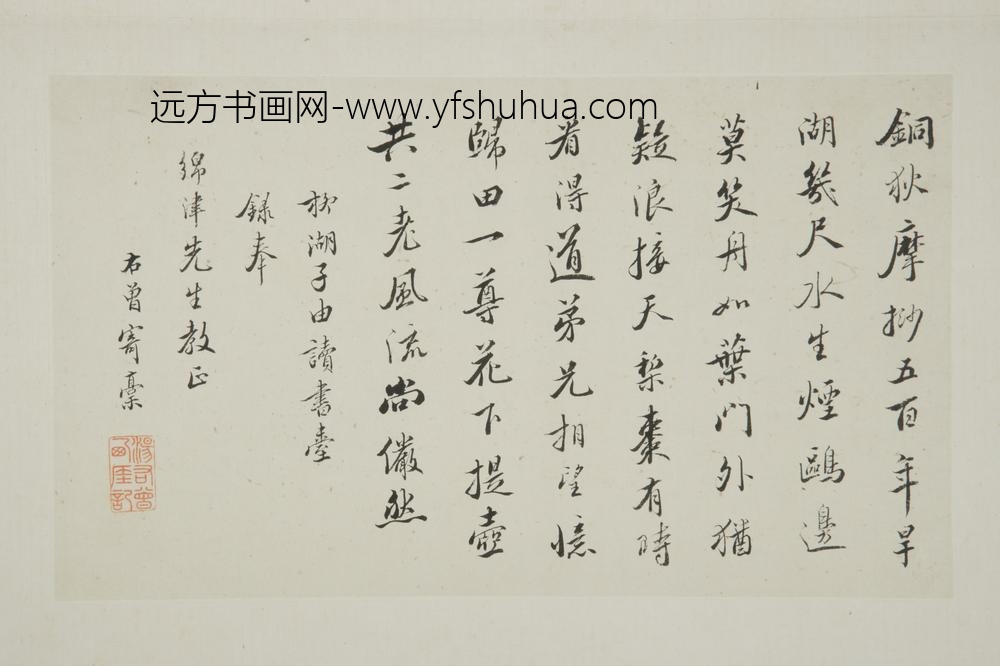 远方书画网-www.yfshuhua.com
銅狄摩挲五百年旱
湖幾尺水生煙鷗邊
莫笑舟如葉門外猶
疑浪接天梨棗有時
看得道弟兄相望憶
歸田一尊花下提壺
共二老風流尚儼然
柳湖子由讀書臺
錄奉
綿津先生教正
右曾寄稾
湯右曾
西厓記